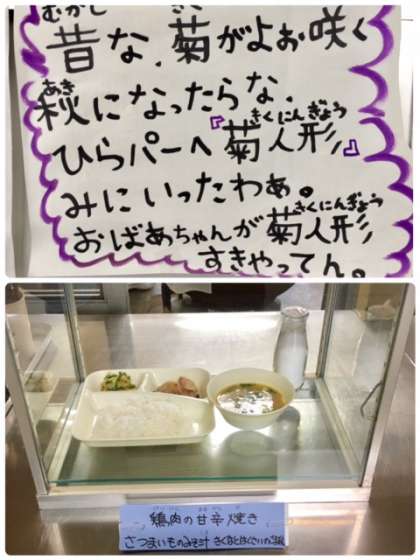 むかし
昔な、菊がよお咲く
あき
秋になったらな、
きくにんぎょう
ひらパーへ『菊人形』
みにいったわぁ。
きくにんぎょう
おばあちゃんが菊人形
すきやってん。
鶏肉の甘辛焼き
さつまいものみそ汁